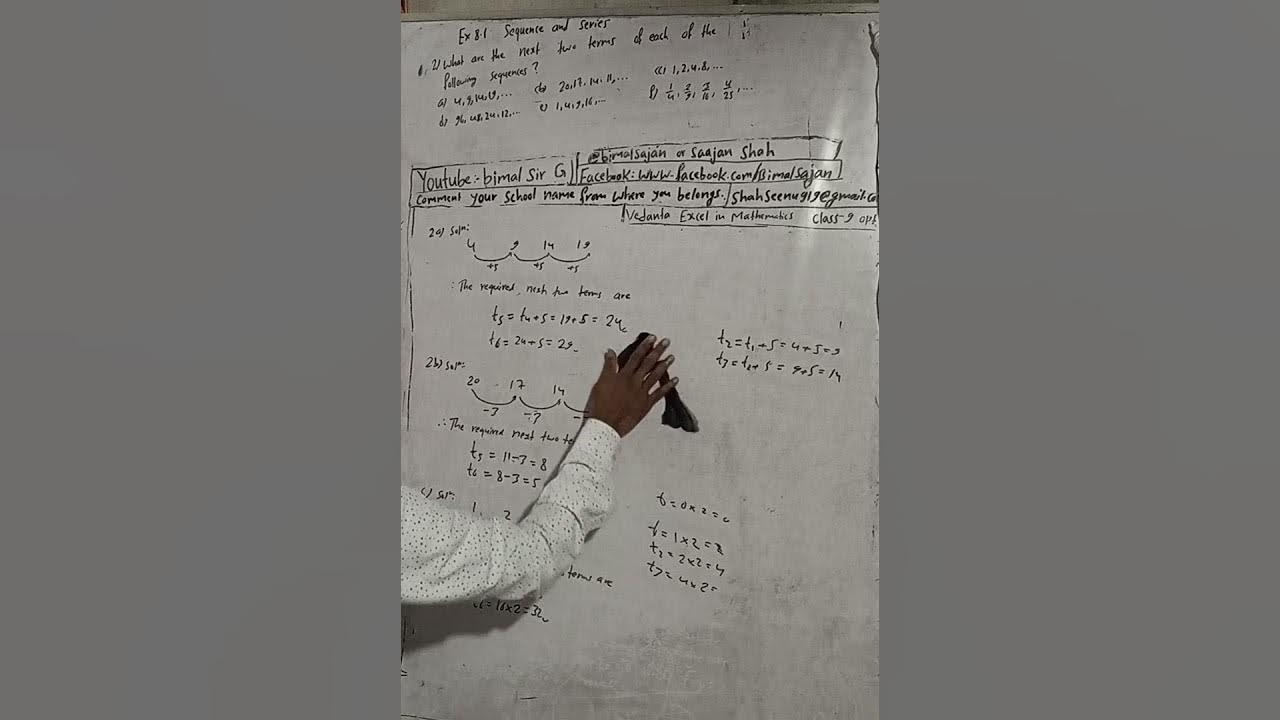 Ex 8.1 Sequence and series
2) What are the next two terms of each of the
following sequences?
a) 4, 9, 14, 19, ... (b) 20, 17, 14, 11, ... (c) 1, 2, 4, 8, ...
d) 96, 48, 24, 12, ... e) 1, 4, 9, 16, ... f) 1/4, 2/9, 3/16, 4/25, ...
@bimalsajan or Saajan Shah
Youtube:- bimal Sir G Facebook: www.facebook.com/Bimalsajan
Comment your school name from where you belongs. / Shahseenu919@gmail.co
Vedanta Excel in Mathematics Class-9 opt.
2a) Solⁿ:
4 9 14 19
+5 +5 +5
∴ The required, next two terms are
t5 = t4+5 = 19+5 = 24
t6 = 24+5 = 29
t2 = t1+5 = 4+5 = 9
t3 = t2+5 = 9+5 = 14
2b) Solⁿ:
20 17 14
-3 -3
∴ The required next two te
t5 = 11-3 = 8
t6 = 8-3 = 5
c) Solⁿ:
1 2
terms are
t6 = 16×2 = 32
t = 0×2 = 0
t = 1×2 = 2
t2 = 2×2 = 4
t3 = 4×2 =